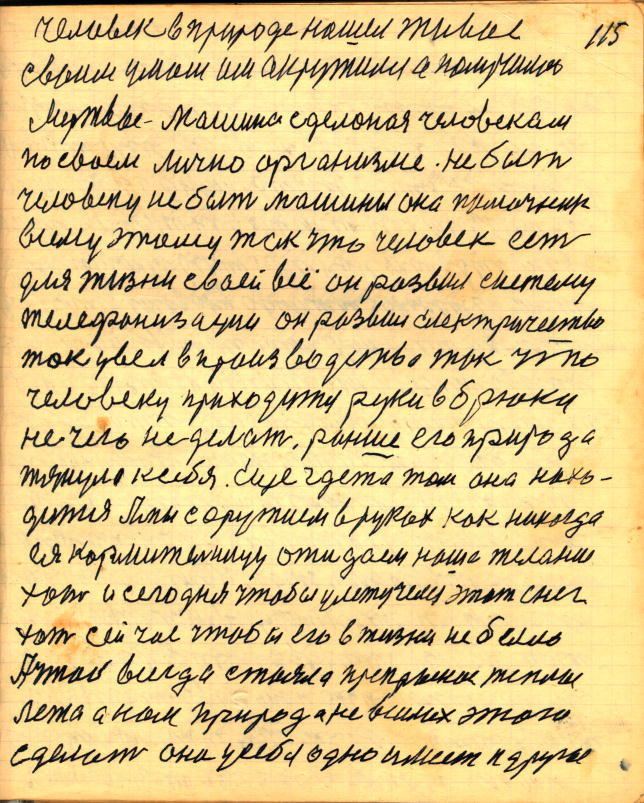 115
человек в природе нашел живое
своим умом им окружили а получилось
Мертвое - Машина сделоная человекам
по своем лично организме. не быт
человеку не быт машины она помочник
всему этому так что человек ест
для жизни своей всё он развил систему
телефонизации он развил електричество
ток увел в производство так что
человеку приходится руки в брюки
не чего не делат. ранше его природа
тянула к себя. Еще где та там она нахо-
дится Мы с оружием в руках как никогда
ея кормителницу ожидаем наша желание
хот и сегодня чтобы улетучел этот снег
хот сейчас чтобы его в жизни не было
А чтобы всегда стояла прекрасное теплое
лета а нам природа не в силах этого
сделат она у себя одно имеет и другое